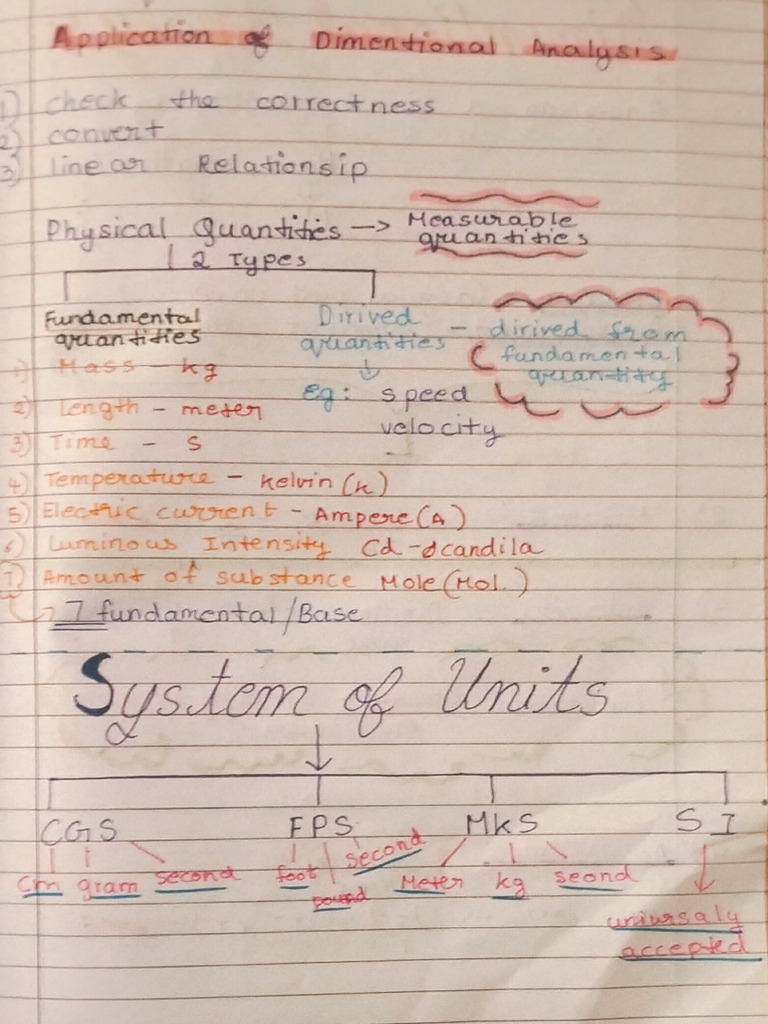 Application of Dimentional Analysis
1) check the correctness
2) convert
3) linear Relationsip
Physical Quantities -> Measurable quantities
2 Types
Fundamental quantities
Dirived quantities - dirived from fundamental quantity
eg: speed
velocity
1) Mass - kg
2) Length - meter
3) Time - s
4) Temperature - kelvin (k)
5) Electric current - Ampere (A)
6) Luminous Intensity Cd - candila
7) Amount of substance Mole (Mol.)
7 fundamental/Base
System of Units
CGS FPS MkS SI
cm gram second foot pound second Meter kg seond
uniursaly
accepted